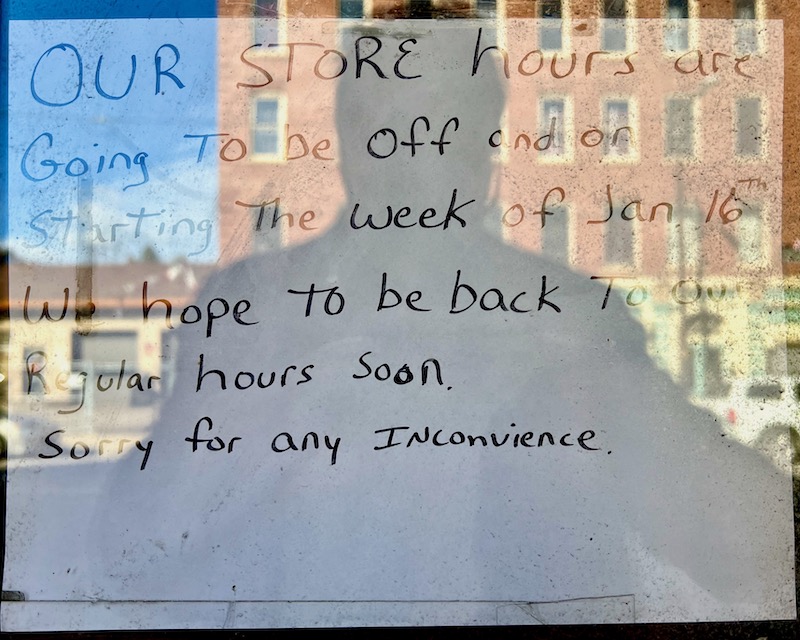 OUR STORE hours are
Going To be Off and or
Starting The week of Jan. 16Th
We hope to be back To Our
Regular hours Soon.
Sorry for any INconvience.